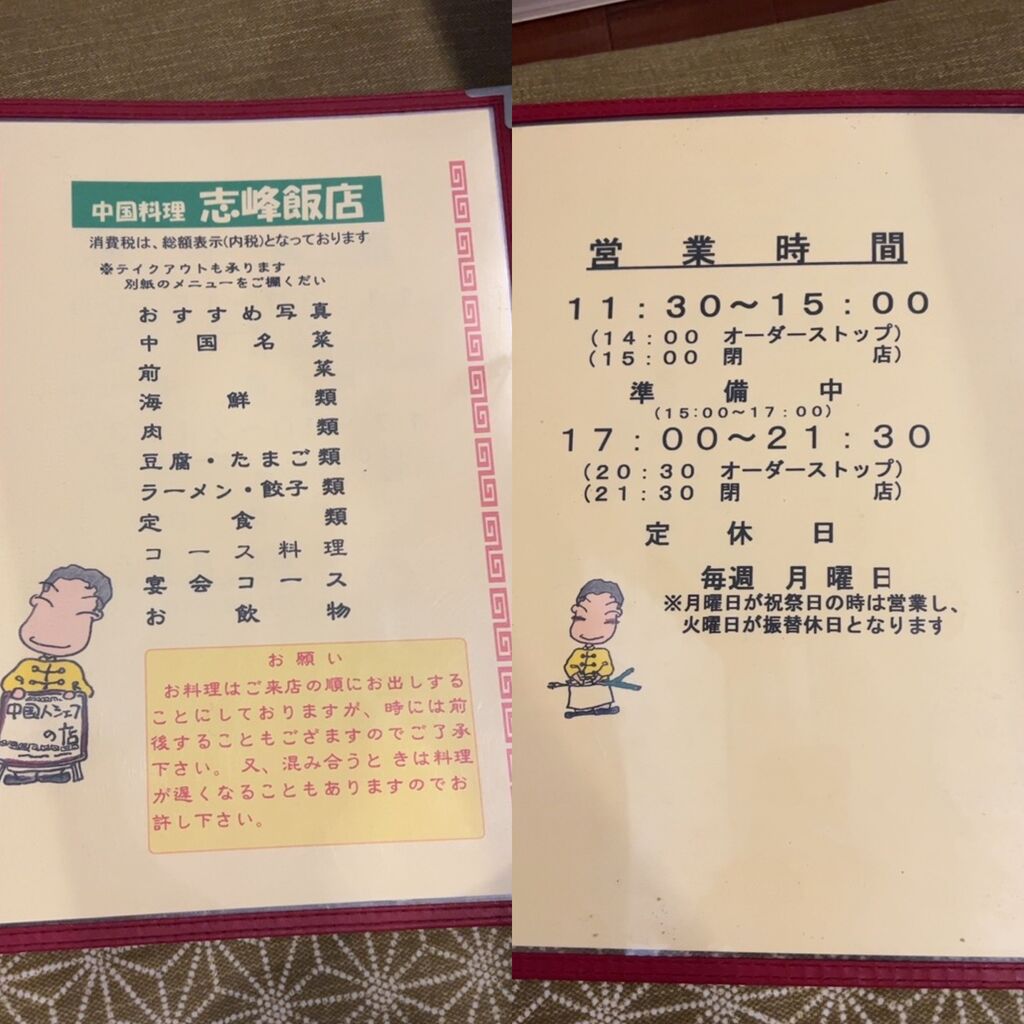 中国料理 志峰飯店
消費税は、総額表示(内税)となっております
※テイクアウトも承ります
別紙のメニューをご欄くだい
おすすめ写真
中国名菜
前菜
海鮮類
肉類
豆腐・たまご類
ラーメン・餃子類
定食類
コース料理
宴会コース
お飲物
中国人シェフ
の店
お願い
お料理はご来店の順にお出しする
ことにしておりますが、時には前
後することもござますのでご了承
下さい。又、混み合うと きは料理
が遅くなることもありますのでお
許し下さい。
営業時間
11:30～15:00
(14:00 オーダーストップ)
(15:00 閉店)
準備中
(15:00～17:00)
17:00～21:30
(20:30 オーダーストップ)
(21:30 閉店)
定休日
毎週 月曜日
※月曜日が祝祭日の時は営業し、
火曜日が振替休日となります